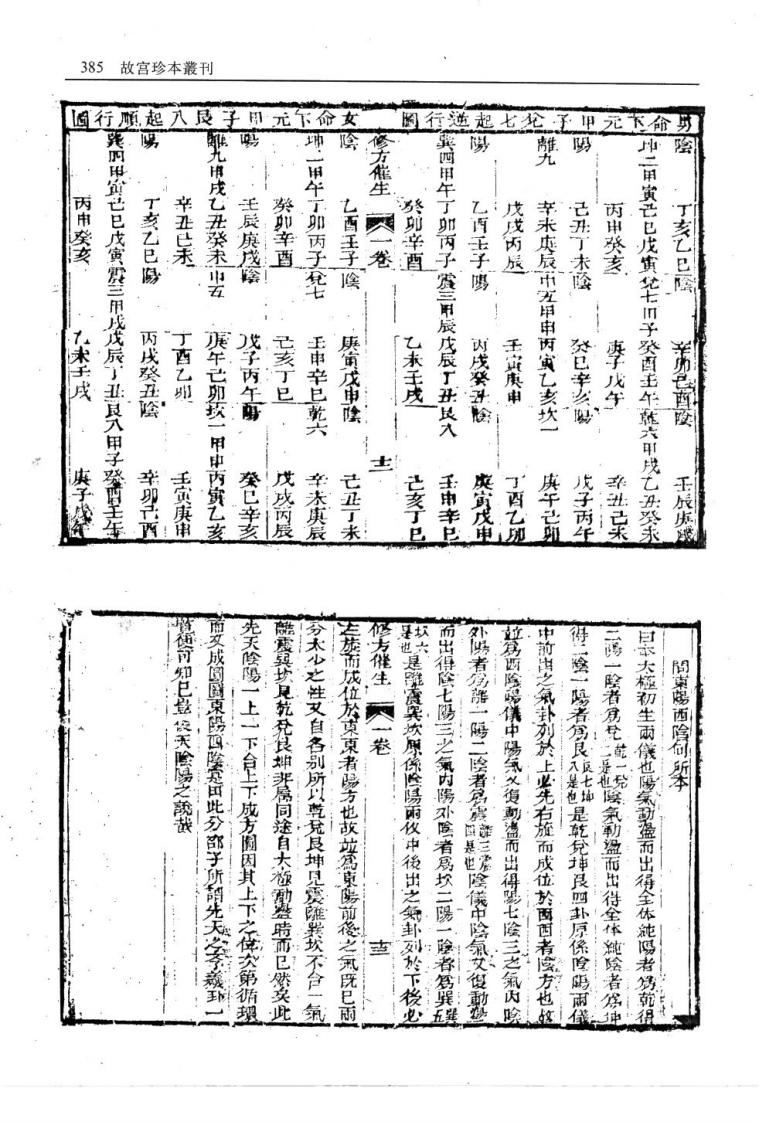 385 故宮珍本叢刊
男命下元甲子兌七起逆行圖
陰 丁亥乙巳陰 辛卯己酉陰 壬辰庚戌
坤二甲寅己巳戊寅兌七甲子癸酉壬午乾六甲戌乙丑癸未
丙申癸亥 庚子戊午 辛丑己未
陽 己丑丁未陰 癸巳辛亥陽 戊子丙午
離九 辛未庚辰中五甲申丙寅乙亥坎一 庚午己卯
戊戌丙辰 壬寅庚申 丁酉乙卯
陽 乙酉壬子陽 丙戌癸丑陰 庚寅戊申
巽四甲午丁卯丙子震三甲辰戊辰丁丑艮八 壬申辛巳
癸卯辛酉 乙未壬戌 己亥丁巳
修方催生 一卷 十二
女命下元甲子艮八起順行圖
陰 乙酉壬子陰 庚寅戊申陰 己丑丁未
坤二甲午丁卯丙子兌七 壬申辛巳乾六 辛未庚辰
癸卯辛酉 己亥丁巳 戊戌丙辰
陽 壬辰庚戌陰 戊子丙午陽 癸巳辛亥
離九甲戌乙丑癸未中五 庚午己卯坎一甲申丙寅乙亥
辛丑己未 丁酉乙卯 壬寅庚申
陽 丁亥乙巳陽 丙戌癸丑陰 辛卯己酉
巽四甲寅己巳戊寅震三甲戌戊辰丁丑艮八甲子癸酉壬午
丙申癸亥 乙未壬戌 庚子戊午
問東陽西陰何所本
曰本太極初生兩儀也陽氣動盪而出得全体純陽者為乾得
二陽一陰者為兌乾一兌二是也陰氣動盪而出得全体純陰者為坤
得二陰一陽者為艮艮七坤八是也是乾兌坤艮四卦原係陰陽兩儀
中前出之氣卦列於上必先右旋而成位於西西者陰方也故
並為西陰陽儀中陽氣又復動盪而出得陽七陰三之氣內陰
外陽者為離一陽二陰者為震離三震四是也陰儀中陰氣又復動盪
而出得陰七陽三之氣內陽外陰者為坎二陽一陰者為巽五巽
坎六是也是離震巽坎原係陰陽兩儀中後出之氣卦列於下後必
左旋而成位於東東者陽方也故並為東陽前後之氣既已兩
修方催生 一卷 十三
分太少之性又自各別所以乾兌艮坤見震離巽坎不合一氣
離震巽坎見乾兌艮坤非屬同途自太極動盪時而已然矣此
先天陰陽一上一下合上下成方圖因其上下之位次第循環
而又成圓圖東陽四陰 因此分邵子所謂先天之字義到一
 使可知已豈後天陰陽之說哉